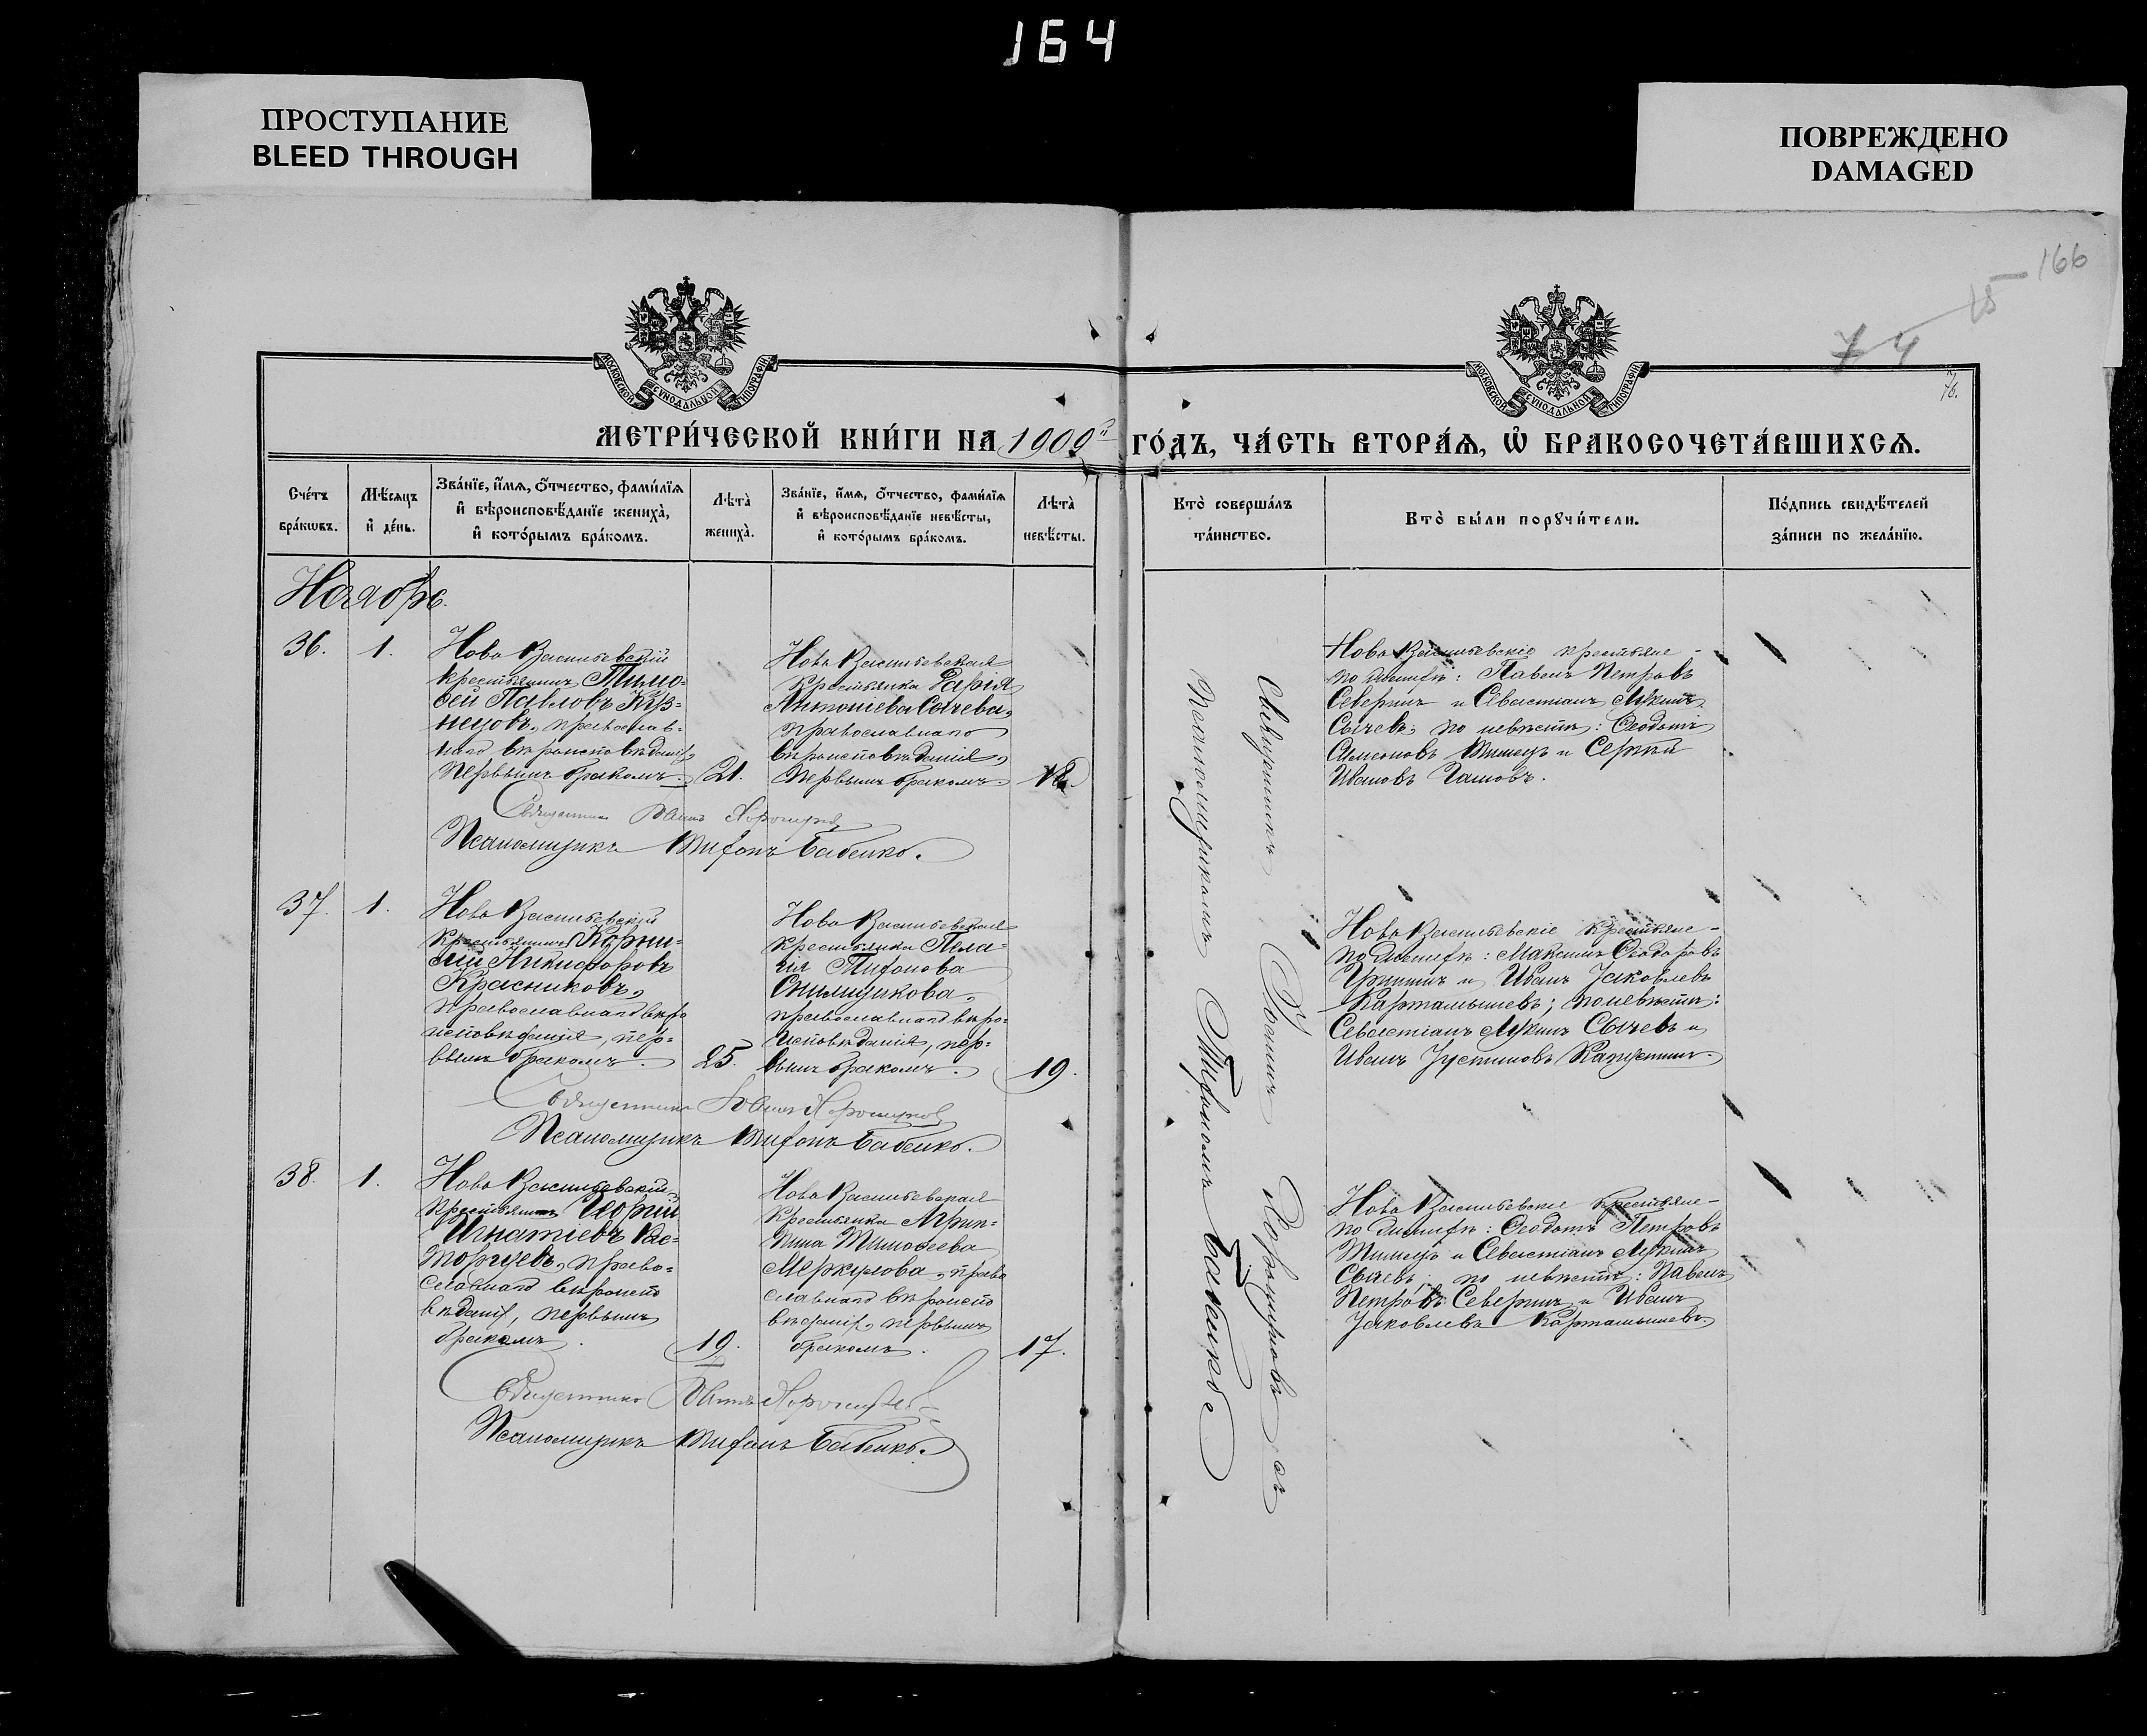 164
ПРОСТУПАНИЕ
BLEED THROUGH
ПОВРЕЖДЕНО
DAMAGED
166
15
74
76.
МОСКОВСКОЙ СѴНОДАЛЬНОЙ ТИПОГРАФІИ
МОСКОВСКОЙ СѴНОДАЛЬНОЙ ТИПОГРАФІИ
МЕТРИ́ЧЕСКОЙ КНИ́ГИ НА 1909й ГО́ДЪ, ЧА́СТЬ ВТОРА́Ѧ, Ѽ БРАКОСОЧЕТА́ВШИХСѦ.
Сче́тъ
бра́кѡвъ.
Мѣ́сяцъ
и҆ де́нь.
Зва́нїе, и҆́мѧ, ѻ҆́тчество, фами́лїѧ
и҆ вѣроисповѣ́данїе жениха̀,
и҆ кото́рымъ бра́комъ.
Лѣта̀
жениха̀.
Зва́нїе, и҆́мѧ, ѻ҆́тчество, фами́лїѧ
и҆ вѣроисповѣ́данїе невѣ́сты,
и҆ кото́рымъ бра́комъ.
Лѣта̀
невѣ́сты.
Кто̀ соверша́лъ
та́инство.
Кто̀ бы́ли порꙋчи́тели.
По́дпись свидѣ́телей
за́писи по жела́нїю.
Ноябрь.
36.
1.
Ново Васильевскій
крестьянинъ Тимо-
ѳей Павловъ Куз-
нецовъ, православ-
наго вѣроисповѣданія,
первымъ бракомъ.
21.
Ново Васильевская
крестьянка Дарія
Сычева,
православнаго
вѣроисповѣданія,
первымъ бракомъ.
18.
Ново Васильевскіе крестьяне -
по женихѣ: Павелъ Петровъ
Северинъ и Севастіанъ Лукинъ
Сычевъ; по невѣстѣ: Ѳеодотъ
Симеоновъ и Сергѣй
Ивановъ
Священникъ Іоаннъ
Псаломщикъ Трифонъ Бабенко.
37.
1.
Ново Васильевскій
крестьянинъ Корни-
лій Никифоровъ
Красниковъ,
православнаго вѣро
исповѣданія, пер-
вымъ бракомъ.
25.
Ново Васильевская
крестьянка Пела-
гія Трифонова
православнаго вѣро-
исповѣданія, пер-
вымъ бракомъ.
19.
Ново Васильевскіе крестьяне -
по женихѣ: Максимъ Ѳеодоровъ
и Иванъ Іаковлевъ
Картамышевъ; по невѣстѣ:
Севастіанъ Лукинъ Сычевъ и
Иванъ Іустиновъ Капустинъ.
Священникъ Іоаннъ
Псаломщикъ Трифонъ Бабенко.
38.
1.
Ново Васильевскій
крестьянинъ Георгій
Игнатіевъ Рас-
торгуевъ, право-
славнаго вѣроиспо
вѣданія, первымъ
бракомъ.
19.
Ново Васильевская
крестьянка Агрип-
пина Тимоѳеева
Меркулова, право
славнаго вѣроиспо
вѣданія, первымъ
бракомъ.
17.
Ново Васильевскіе крестьяне -
по женихѣ: Ѳеодотъ Петровъ
и Севастіанъ Лукинъ
Сычевъ; по невѣстѣ: Павелъ
Петровъ Северинъ и Иванъ
Іаковлевъ Картамышевъ.
Священникъ Іоаннъ
Псаломщикъ Трифонъ Бабенко.
Священникъ Іоаннъ съ
Псаломщикомъ Трифономъ Бабенко